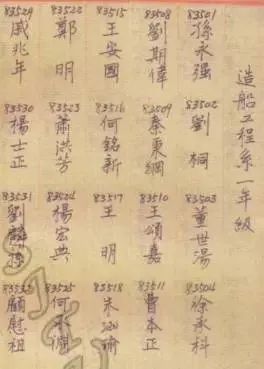 造船工程系一年級
83501
孫永强
83502
劉桐
83503
董世湯
83504
徐承科
83508
劉期偉
83509
秦東綱
83510
王頌嘉
83511
曹本正
83515
王安國
83516
何銘新
83517
王明
83518
朱
83522
鄭明
83523
蕭洪芳
83524
楊宏典
83525
何
83529
戚兆年
83530
楊士正
83531
劉
顧慰祖